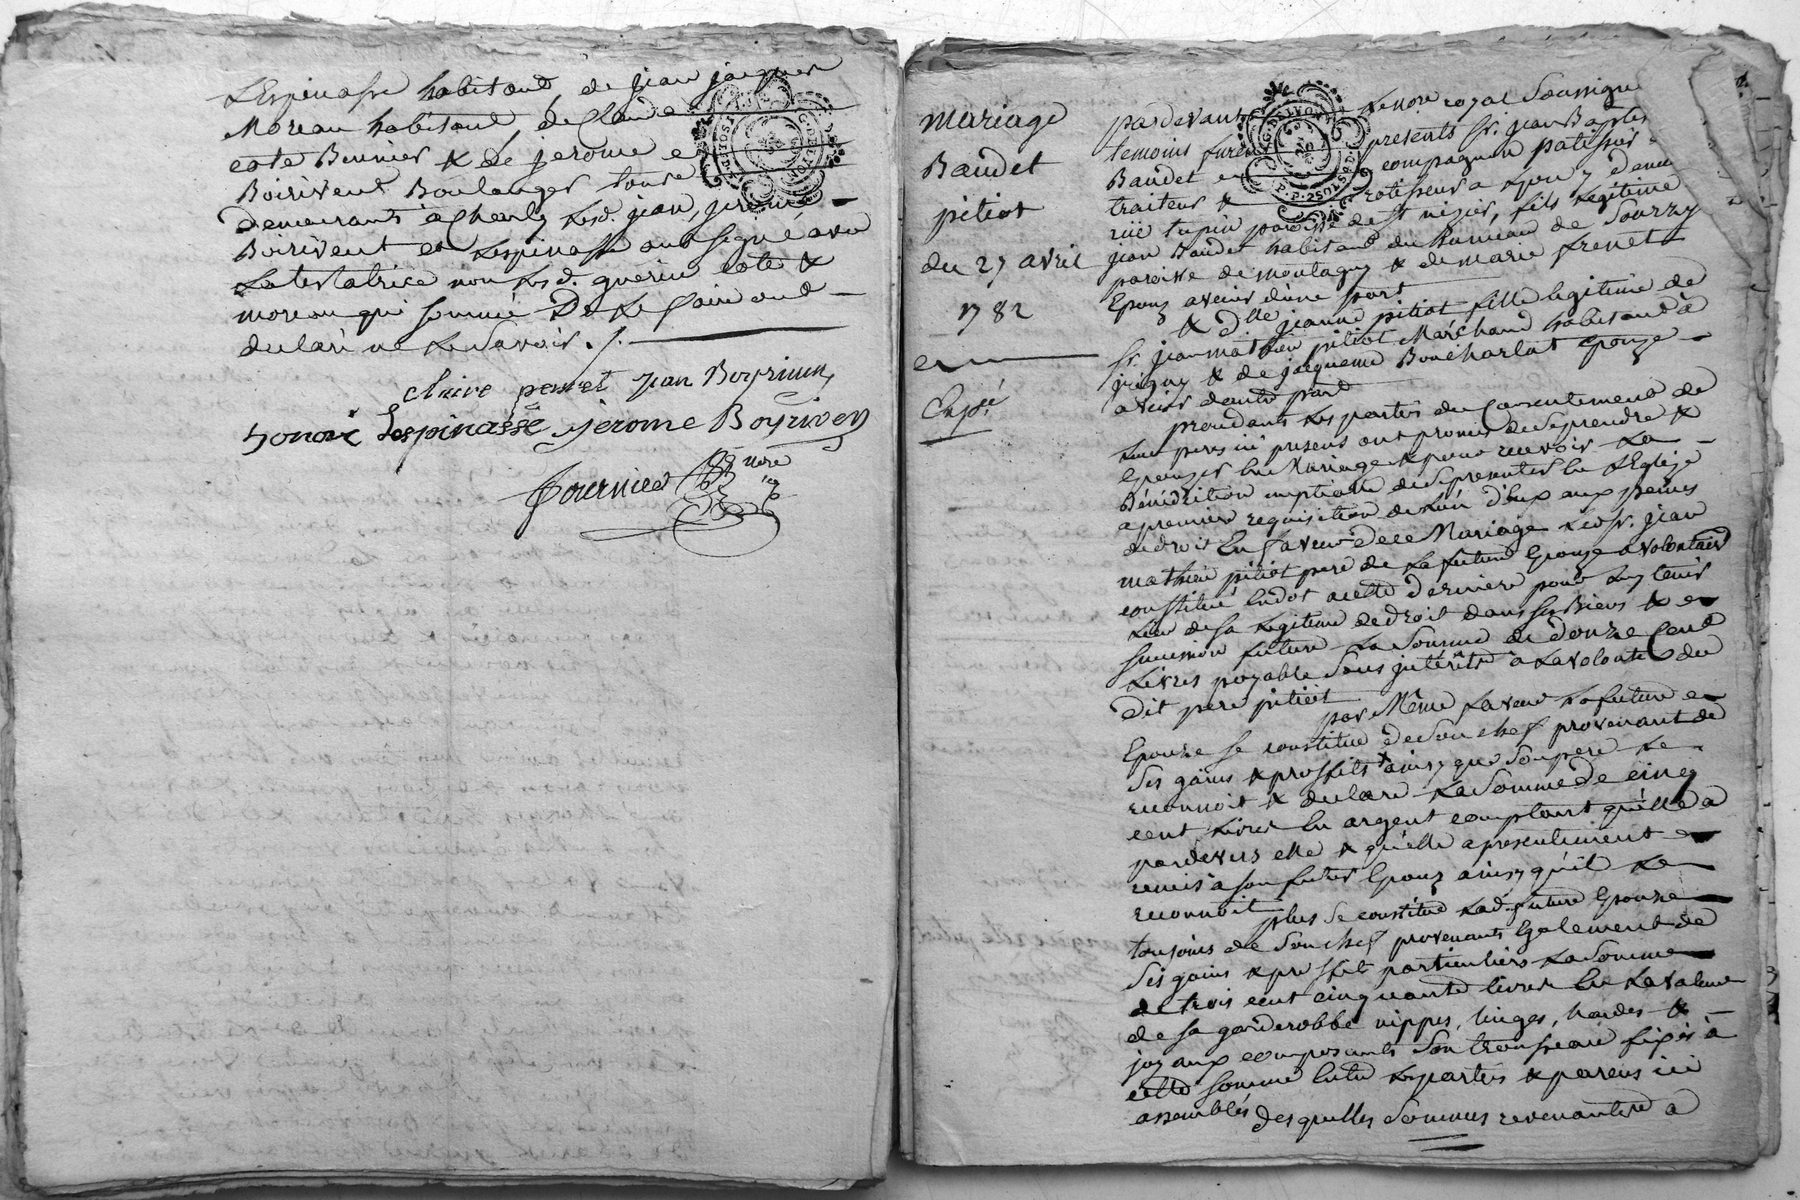 Lespinasse habitant, de jean jacques
Moreau habitant, de Claude
cote Bennier & de jerome
Boirivent Boulanger tous
demeurants à Charly Lesd. jean, jerome
Boirivent et Lespinasse ont signé avec
La testatrice non Lesd. guerin cote &
moreau qui sommé De Le faire ont
declaré ne Le Savoir ./.
claire perret jean Boyrivent
honoré Lespinasse jerome Boyriven
Fournier nore
mariage
Baudet
pitiot
du 27 avril
1782
Expé
pardevant Le nore royal Soussigné
temoins furent presents Sr. jean Baptis
Baudet compagnon patissier
traiteur & rotisseur a Lyon y demeu
rue tupin paroisse de St nizier, fils Legitime
jean Baudet habitant du hameau de Sourzy
paroisse de montagny & de marie frenet
Epoux avenir d'une part
& dlle jeanne pitiot fille legitime de
Sr. jean mathieu pitiot Marchand habitant à
irigny & de jacqueme Boucharlat Epouze
avenir dautre part
procedants Les parties du Consentement de
Leurs peres ici presens ont promis de Seprendre &
Epouzer En Mariage & pour recevoir La
Bénédiction nuptiale de Sepresenter En L'Eglize
a premiere requisition de Lun d'Eux aux peines
de droit En faveur de ce Mariage Led Sr. jean
mathieu pitiot pere de La future Epouze a volontair
constitué En dot a cette derniere pour Luy tenir
Lieu de Sa Legitime de droit dans Ses Biens &
Succession future La Somme de douze Cent
Livres payable Sans intérêts à La volonté du
dit pere pitiot
par Meme faveur La future
Epouze Se constitue de Son chef provenant de
Ses gains & proffits ainsy que Son pere Le
reconnoit & declare La Somme de cinq
cent Livres En argent comptant qu'elle a
pardevers elle & qu'elle a presentement
remis a Son futur Epoux ainsy qu'il Le
reconnoit
plus Se constitue Lad. future Epouze
toujours de Son chef provenants Egalement de
Ses gains & proffit particuliers La Somme
de trois cent cinquante livres En La valeur
de Sa garderobbe nippes, linges, hardes &
joyaux composants Son trousseau fixés à
cette Somme Entre Les parties & parens ici
assemblés
des quelles Sommes revenantes a